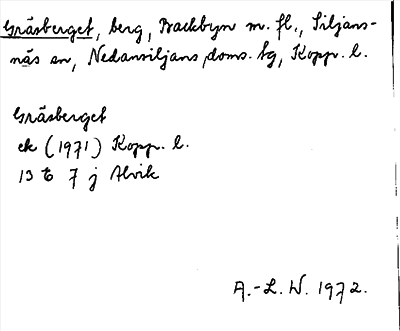 Gräsberget, berg, Backbyn m. fl., Siljans-
näs sn, Nedansiljans doms. tg, Kopp. l.
Gräsberget
ek (1971) Kopp. l.
13 E 7 j Alvik
A.-L. W. 1972.